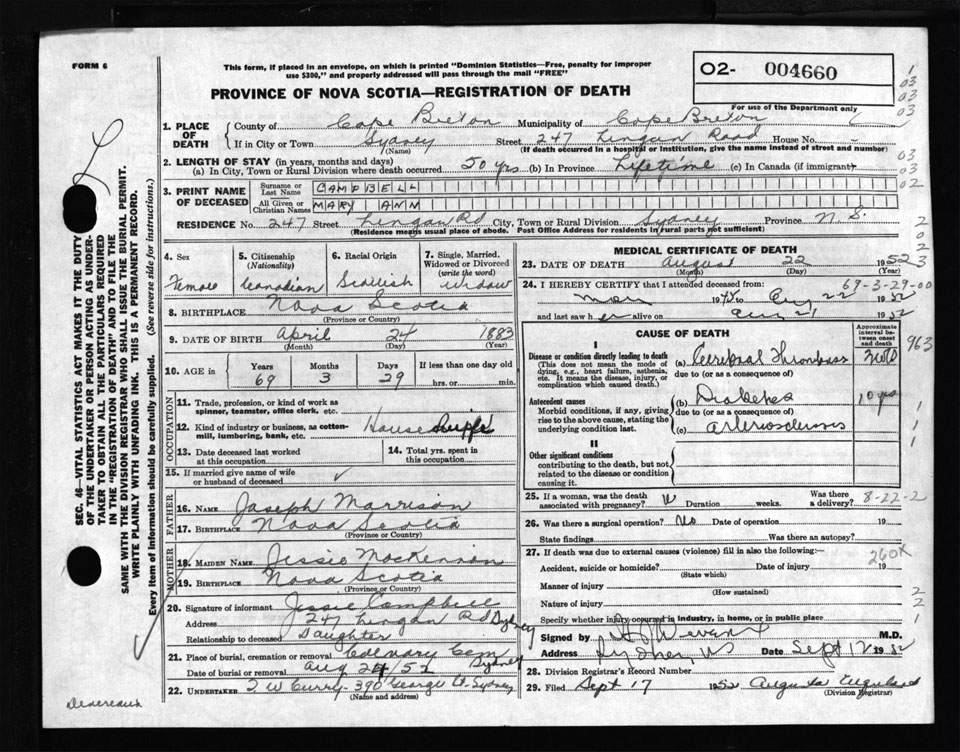 FORM 6
This form, if placed in an envelope, on which is printed "Dominion Statistics—Free, penalty for improper
use $300," and properly addressed will pass through the mail "FREE"
O2- 004660
PROVINCE OF NOVA SCOTIA—REGISTRATION OF DEATH
For use of the Department only
1. PLACE OF DEATH County of Cape Breton Municipality of Cape Breton
If in City or Town Sydney (Name) Street 247 Lingan Road House No.
(If death occurred in a hospital or institution, give the name instead of street and number)
2. LENGTH OF STAY (in years, months and days)
(a) In City, Town or Rural Division where death occurred 50 yrs (b) In Province Lifetime (c) In Canada (if immigrant)
3. PRINT NAME OF DECEASED Surname or Last Name CAMPBELL
All Given or Christian Names MARY ANN
RESIDENCE No. 247 Street Lingan Rd City, Town or Rural Division Sydney Province N.S.
(Residence means usual place of abode. Post Office Address for residents in rural parts not sufficient)
4. Sex Female
5. Citizenship (Nationality) Canadian
6. Racial Origin Scottish
7. Single, Married, Widowed or Divorced (write the word) Widow
8. BIRTHPLACE Nova Scotia
(Province or Country)
9. DATE OF BIRTH April 24 1883
(Month) (Day) (Year)
10. AGE in Years 69 Months 3 Days 29 If less than one day old
hrs. or min.
OCCUPATION
11. Trade, profession, or kind of work as
spinner, teamster, office clerk, etc.
12. Kind of industry or business, as cotton-
mill, lumbering, bank, etc. House
13. Date deceased last worked
at this occupation
14. Total yrs. spent in
this occupation
15. If married give name of wife
or husband of deceased
FATHER
16. NAME Joseph Marrison
17. BIRTHPLACE Nova Scotia
(Province or Country)
MOTHER
18. MAIDEN NAME Jessie MacKennon
19. BIRTHPLACE Nova Scotia
(Province or Country)
20. Signature of informant Jessie Campbell
Address 247 Lingan Rd Sydney
Relationship to deceased Daughter
21. Place of burial, cremation or removal Cem Sydney
Date of burial or removal Aug 24/52
22. UNDERTAKER T W Curry 390 George St. Sydney
(Name and address)
MEDICAL CERTIFICATE OF DEATH
23. DATE OF DEATH August 22 1952
(Month) (Day) (Year)
24. I HEREBY CERTIFY that I attended deceased from: 69-3-29-00
19 to Aug 22 1952
and last saw her alive on Aug 21 1952
CAUSE OF DEATH
Approximate interval between onset and death
I
Disease or condition directly leading to death (a) Cerebral Thrombosis
(This does not mean the mode of dying, e.g., heart failure, asthenia, etc. It means the disease, injury, or complication which caused death.)
due to (or as a consequence of)
Antecedent causes (b) Diabetes 10 yrs
Morbid conditions, if any, giving rise to the above cause, stating the underlying condition last.
due to (or as a consequence of)
(c) arteriosclerosis
II
Other significant conditions
contributing to the death, but not related to the disease or condition causing it.
963
25. If a woman, was the death associated with pregnancy? Duration weeks. Was there a delivery? 8-22-2
26. Was there a surgical operation? No Date of operation 19
State findings Was there an autopsy?
27. If death was due to external causes (violence) fill in also the following:— 260X
Accident, suicide or homicide? Date of injury 19
(State which)
Manner of injury
(How sustained)
Nature of injury
Specify whether injury occurred in industry, in home, or in public place
Signed by M.D.
Address Sydney NS Date Sept 12 1952
28. Division Registrar's Record Number
29. Filed Sept 17 1952 Augusta
(Division Registrar)
SEC. 46—VITAL STATISTICS ACT MAKES IT THE DUTY
OF THE UNDERTAKER OR PERSON ACTING AS UNDER-
TAKER TO OBTAIN ALL THE PARTICULARS REQUIRED
IN THE "REGISTRATION OF DEATH" AND TO FILE THE
SAME WITH THE DIVISION REGISTRAR WHO SHALL ISSUE THE BURIAL PERMIT.
WRITE PLAINLY WITH UNFADING INK. THIS IS A PERMANENT RECORD.
Every item of information should be carefully supplied. (See reverse side for instructions.)
Devereaux